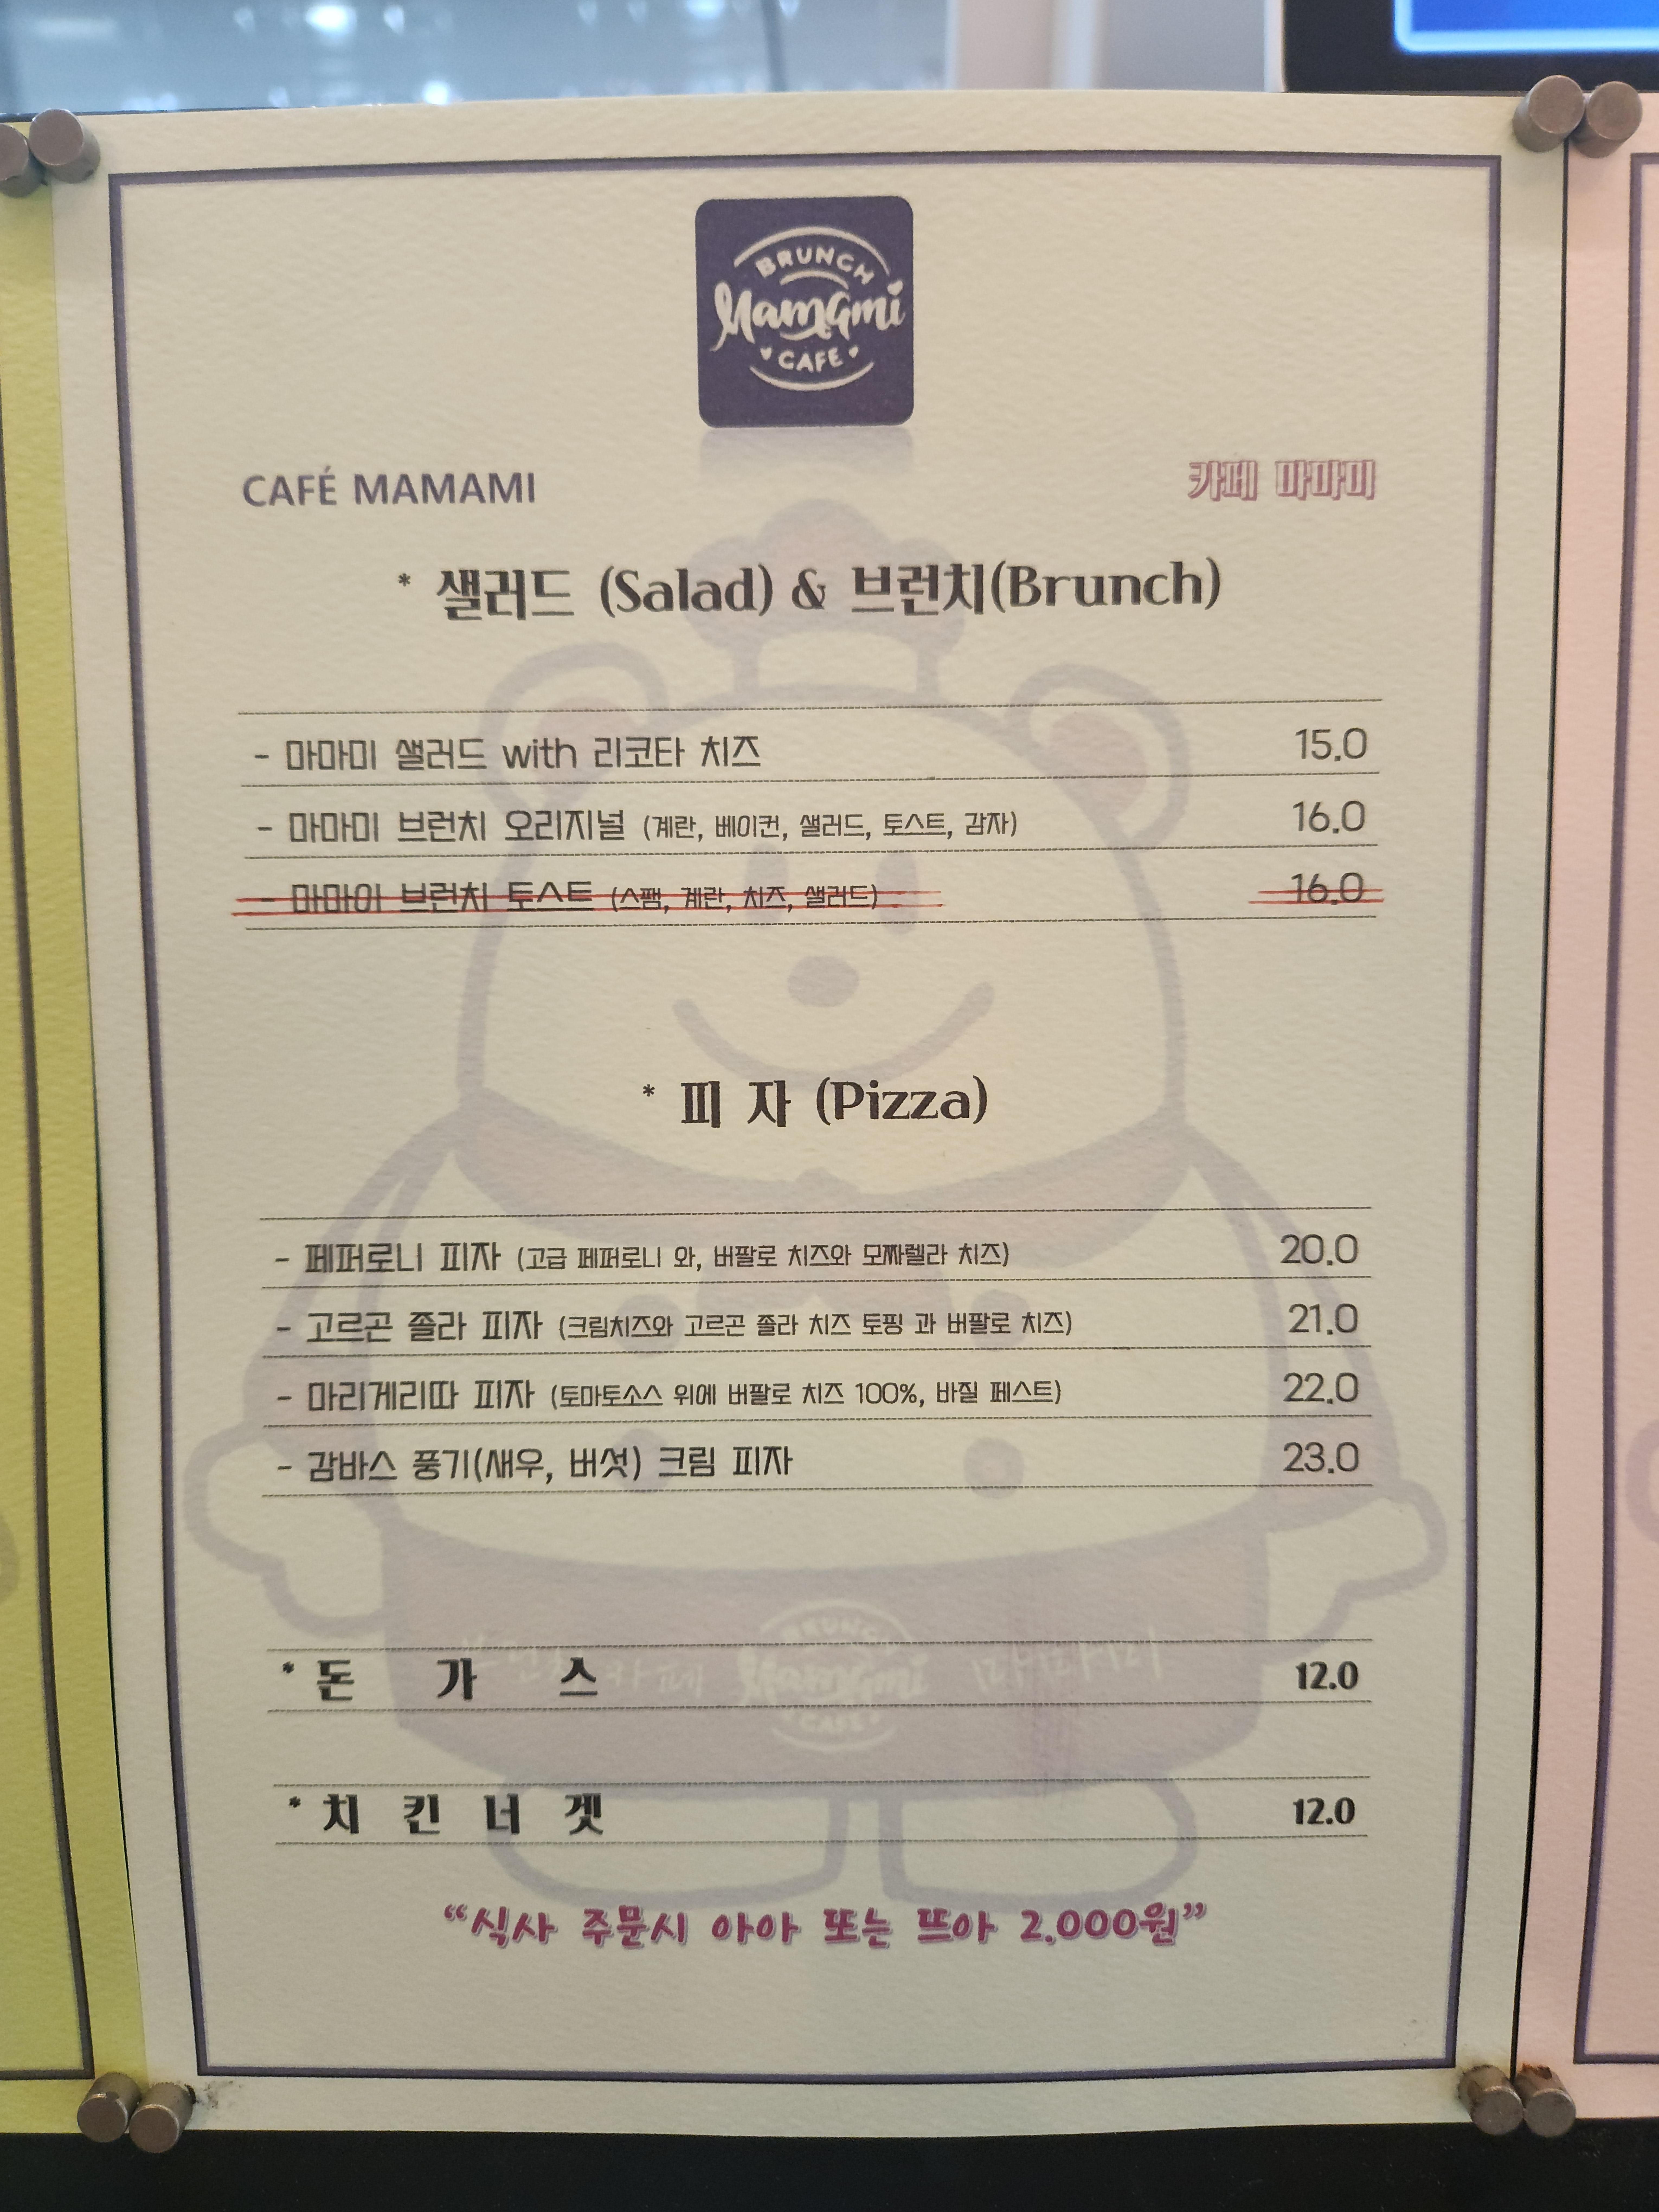 BRUNCH
Mamami
CAFE
CAFÉ MAMAMI
카페 마마미
* 샐러드 (Salad) & 브런치(Brunch)
- 마마미 샐러드 with 리코타 치즈 15.0
- 마마미 브런치 오리지널 (계란, 베이컨, 샐러드, 토스트, 감자) 16.0
- 마마이 브런치 토스트 (스팸, 계란, 치즈, 샐러드) 16.0
* 피 자 (Pizza)
- 페퍼로니 피자 (고급 페퍼로니 와, 버팔로 치즈와 모짜렐라 치즈) 20.0
- 고르곤 졸라 피자 (크림치즈와 고르곤 졸라 치즈 토핑 과 버팔로 치즈) 21.0
- 마리게리따 피자 (토마토소스 위에 버팔로 치즈 100%, 바질 페스트) 22.0
- 감바스 풍기(새우, 버섯) 크림 피자 23.0
BRUNCH
Mamami
CAFE
* 돈 가 스 12.0
* 치 킨 너 겟 12.0
“식사 주문시 아아 또는 뜨아 2.000원”